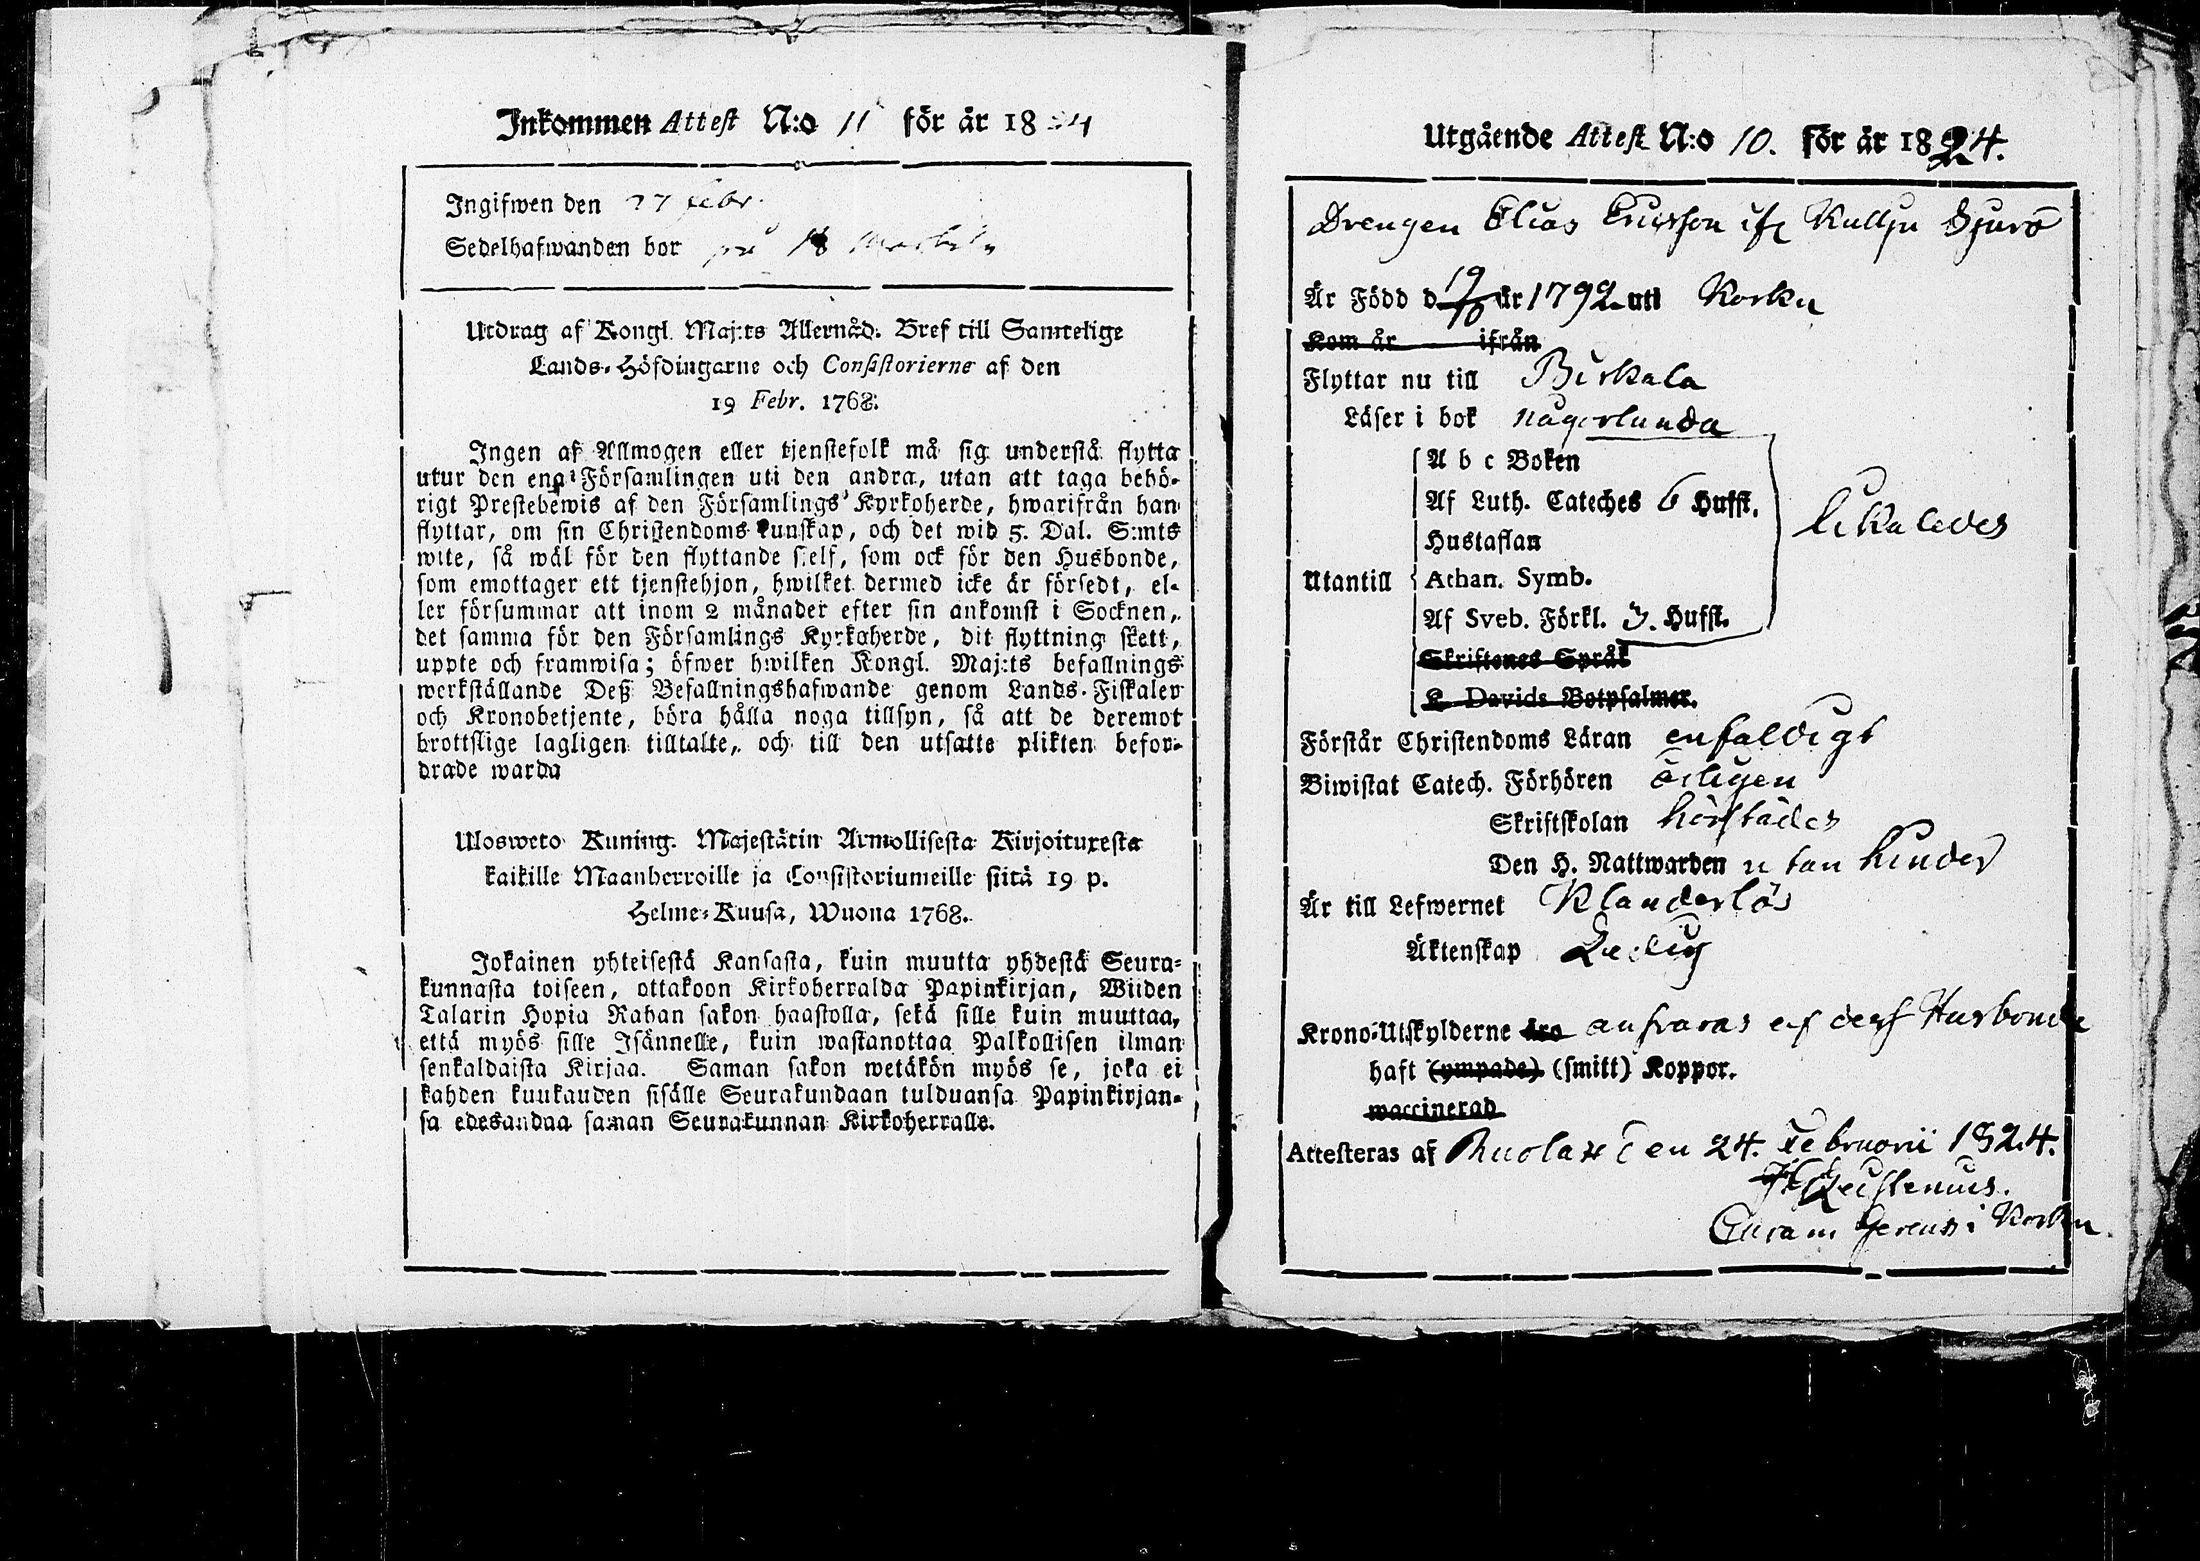 Inkommen Attest N:o 11 för år 1824
Ingifwen den 27 febr.
Sedelhafwanden bor på
Utdrag af Kongl. Maj:ts Allernåd. Bref till Samtelige
Lands-Höfdingarne och Consistorierne af den
19 Febr. 1768.
Ingen af Allmogen eller tjenstefolk må sig understå flytta
utur den ena Församlingen uti den andra, utan att taga behö-
rigt Prestebewis af den Församlings Kyrkoherde, hwarifrån han
flyttar, om sin Christendoms kunskap, och det wid 5. Dal. S:mts
wite, så wäl för den flyttande sjelf, som ock för den Husbonde,
som emottager ett tjenstehjon, hwilket dermed icke är försedt, el-
ler försummar att inom 2 månader efter sin ankomst i Socknen,
det samma för den Församlings Kyrkoherde, dit flyttning skett,
uppte och framwisa; öfwer hwilken Kongl. Maj:ts befallnings
werkställande Deß Befallningshafwande genom Lands-Fiskaler
och Kronobetjente, böra hålla noga tillsyn, så att de deremot
brottslige lagligen tilltalte, och till den utsatte plikten befor-
drade warda
Ulosweto Kuning. Majestätin Armollisesta Kirjoituxesta
kaikille Maanherroille ja Consistoriumeille siitä 19 p.
Helme-Kuusa, Wuona 1768.
Jokainen yhteisestä Kansasta, kuin muutta yhdestä Seura-
kunnasta toiseen, ottakoon Kirkoherralda Papinkirjan, Wiiden
Talarin Hopia Rahan sakon haastolla, sekä sille kuin muuttaa,
että myös sille Isännelle, kuin wastanottaa Palkollisen ilman
senkaldaista Kirjaa. Saman sakon wetäkön myös se, joka ei
kahden kuukauden sisälle Seurakundaan tulduansa Papinkirjan-
sa edesandaa saman Seurakunnan Kirkoherralle.
Utgående Attest N:o 10. för år 1824.
Drengen Elias Ericsson ifr Kullju Djurö
Är Född d 19/10 år 1792 uti Korku
Kom år ifrån
Flyttar nu till Birkala
Läser i bok någorlunda
A b c Boken
Af Luth. Cateches 6 Hufst.
Hustaflan
likaledes
Utantill Athan. Symb.
Af Sveb. Förkl. 3. Hufst.
Skriftenes Språk
K Davids Botpsalmer.
Förstår Christendoms Läran enfaldigt
Biwistat Catech. Förhören årligen
Skriftskolan
Den H. Nattwarden utan hinder
Är till Lefwernet Klanderlös
Äktenskap Ledig
Krono-Utskylderne äro ansvaras af dess Husbonde
haft (ympade) (smitt) Koppor.
waccinerad
Attesteras af Ruolax den 24. Februarii 1824.
Curam Gerens i Korku.